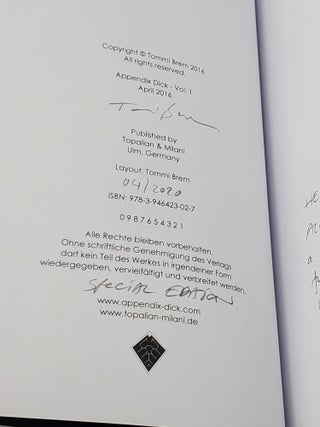 Copyright © Tommi Brem 2016
All rights reserved.
Appendix Dick - Vol. 1
April 2016
Published by
Topalian & Milani
Ulm, Germany
Layout: Tommi Brem
04/2020
ISBN: 978-3-946423-02-7
0 9 8 7 6 5 4 3 2 1
Alle Rechte bleiben vorbehalten.
Ohne schriftliche Genehmigung des Verlags
darf kein Teil des Werkes in irgendeiner Form
wiedergegeben, vervielfältigt und verbreitet werden.
SPECIAL EDITION
www.appendix-dick.com
www.topalian-milani.de